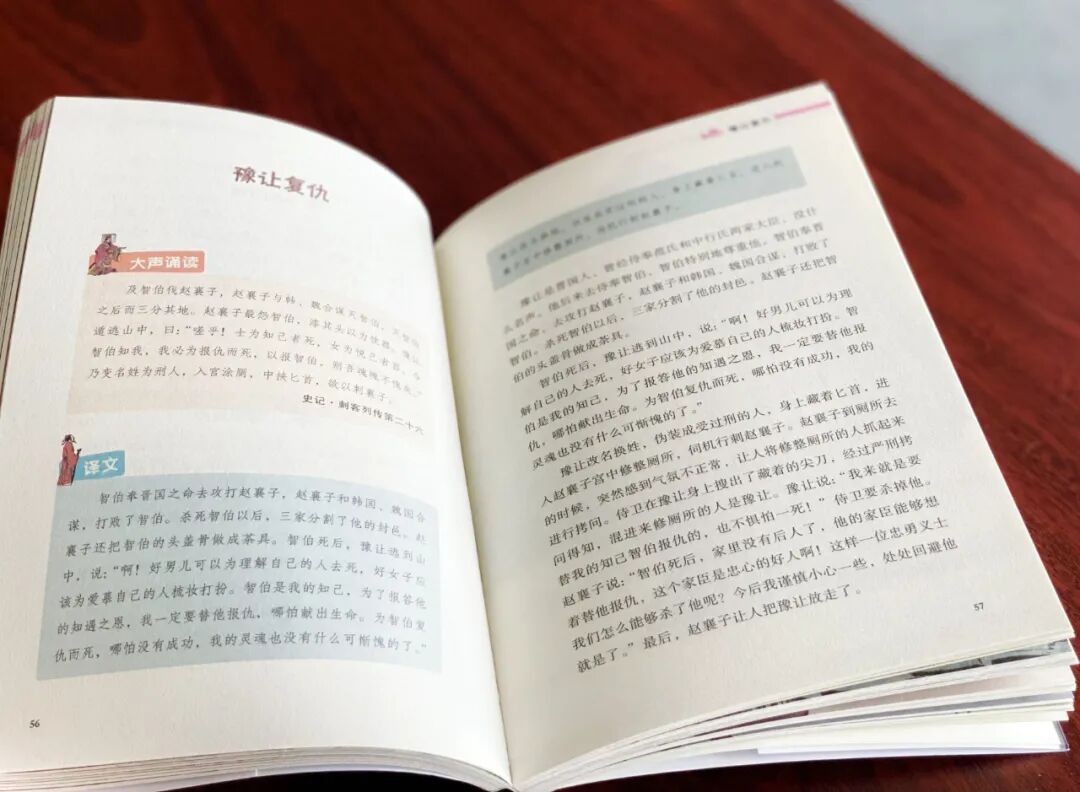 豫让复仇
大声诵读
及智伯伐赵襄子，赵襄子与韩、魏合谋灭智伯，灭智伯
之后而三分其地。赵襄子最怨智伯，漆其头以为饮器。豫让
道逃山中，曰：“嗟乎！士为知己者死，女为悦己者容。今
智伯知我，我必为报仇而死，以报智伯，则吾魂魄不愧矣。”
乃变名姓为刑人，入宫涂厕，中挟匕首，欲以刺襄子。
史记·刺客列传第二十六
译文
智伯奉晋国之命去攻打赵襄子，赵襄子和韩国、魏国合
谋，打败了智伯。杀死智伯以后，三家分割了他的封邑。赵
襄子还把智伯的头盖骨做成茶具。智伯死后，豫让逃到山
中，说：“啊！好男儿可以为理解自己的人去死，好女子应
该为爱慕自己的人梳妆打扮。智伯是我的知己，为了报答他
的知遇之恩，我一定要替他报仇，哪怕献出生命。为智伯复
仇而死，哪怕没有成功，我的灵魂也没有什么可惭愧的了。”
56
豫让复仇
豫让改名换姓，伪装成受过刑的人，身上藏着匕首，进入赵
襄子宫中修整厕所，伺机行刺赵襄子。
豫让是晋国人，曾经侍奉范氏和中行氏两家大臣，没什
么名声。他后来去侍奉智伯，智伯特别地尊重他。智伯奉晋
国之命，去攻打赵襄子，赵襄子和韩国、魏国合谋，打败了
智伯。杀死智伯以后，三家分割了他的封邑。赵襄子还把智
伯的头盖骨做成茶具。
智伯死后，豫让逃到山中，说：“啊！好男儿可以为理
解自己的人去死，好女子应该为爱慕自己的人梳妆打扮。智
伯是我的知己，为了报答他的知遇之恩，我一定要替他报
仇，哪怕献出生命。为智伯复仇而死，哪怕没有成功，我的
灵魂也没有什么可惭愧的了。”
豫让改名换姓，伪装成受过刑的人，身上藏着匕首，进
入赵襄子宫中修整厕所，伺机行刺赵襄子。赵襄子到厕所去
的时候，突然感到气氛不正常，让人将修整厕所的人抓起来
进行拷问。侍卫在豫让身上搜出了藏着的尖刀，经过严刑拷
问得知，混进来修厕所的人是豫让。豫让说：“我来就是要
替我的知己智伯报仇的，也不惧怕一死！”侍卫要杀掉他。
赵襄子说：“智伯死后，家里没有后人了，他的家臣能够想
着替他报仇，这个家臣是忠心的好人啊！这样一位忠勇义士
我们怎么能够杀了他呢？今后我谨慎小心一些，处处回避他
就是了。”最后，赵襄子让人把豫让放走了。
57